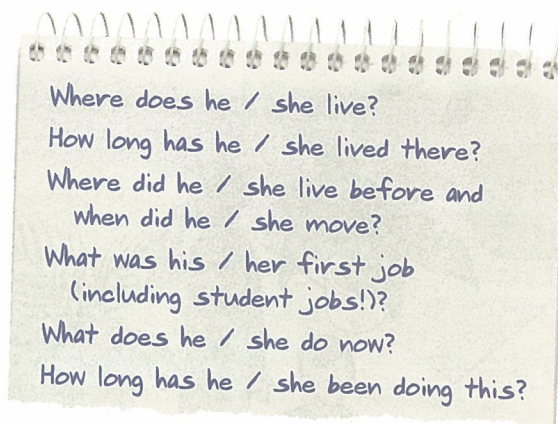 Where does he / she live?
How long has he / she lived there?
Where did he / she live before and
when did he / she move?
What was his / her first job
(including student jobs!)?
What does he / she do now?
How long has he / she been doing this?